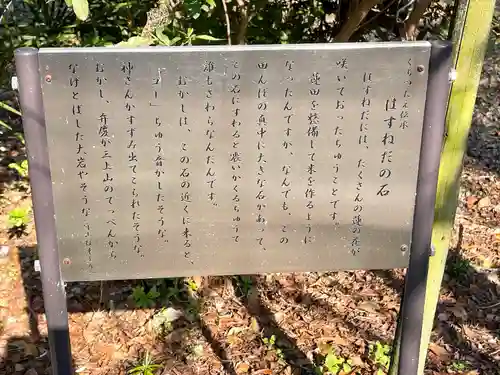 くちったん伝承
はすねだの石
はすねだには、たくさんの蓮の花が
咲いておったちゅうことです。
蓮田を整備して米を作るように
なったんですが、なんでも、この
田んぼの真中に大きな石があって、
この石にすわると襲いかくるちゅうて
誰もさわらなんだんです。
おかしは、この石の近くに来ると、
「すー」ちゅう音がしたそうな。
神さんがすすみ出てこられたそうな。
おかし、弁慶が三上山のてっぺんから
なげとばした大岩やそうな。